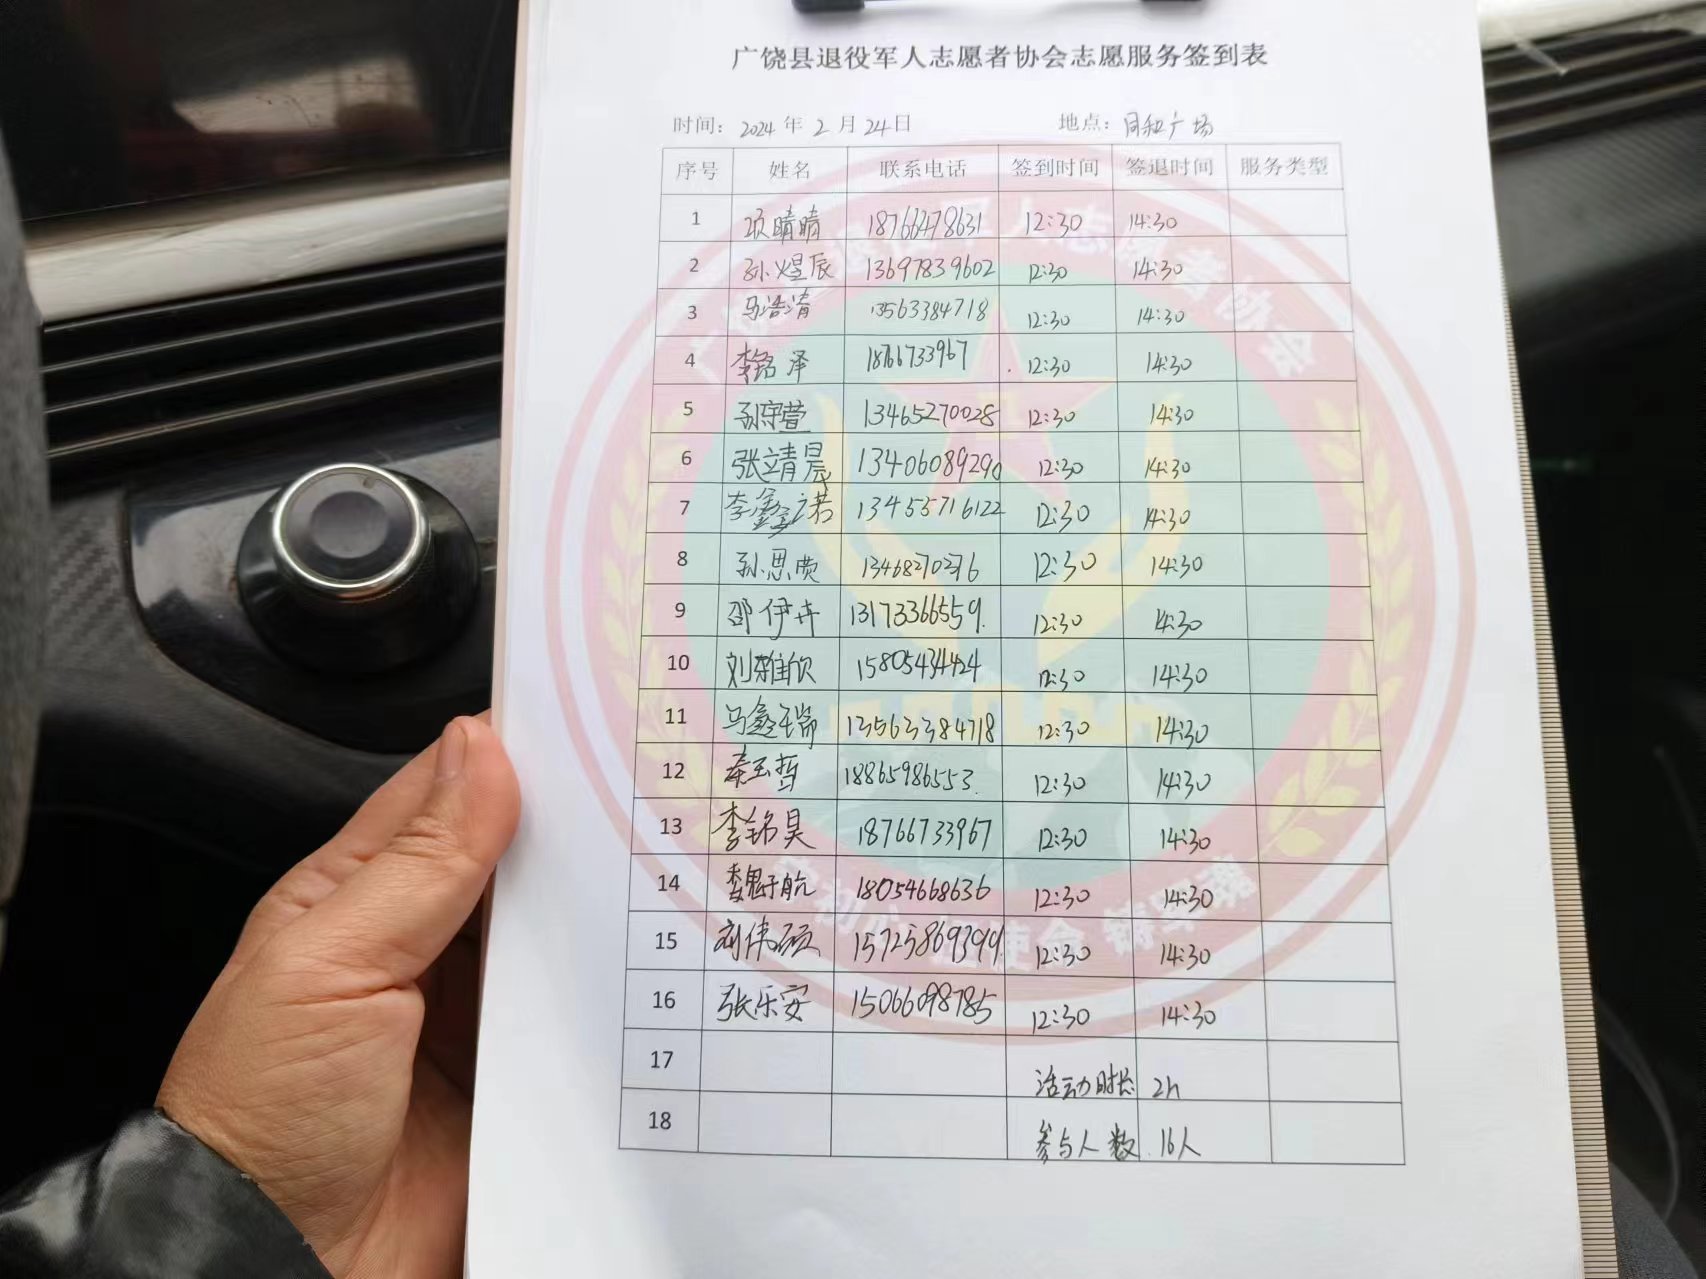 广饶县退役军人志愿者协会志愿服务签到表
时间: 2024 年 2 月 24 日 地点: 同和广场
序号 姓名 联系电话 签到时间 签退时间 服务类型
1 项晴晴 18766478631 12:30 14:30
2 孙煜辰 13697839602 12:30 14:30
3 马浩清 13563384718 12:30 14:30
4 李铭泽 18766733967 12:30 14:30
5 孙守萱 13465270028 12:30 14:30
6 张靖晨 13406089290 12:30 14:30
7 李鑫诺 13455716122 12:30 14:30
8 孙思 13468270276 12:30 14:30
9 邵伊卉 13173366559. 12:30 14:30
10 刘雅欣 15805434424 12:30 14:30
11 马鑫瑞 13563384718 12:30 14:30
12 秦玉哲 18865986553. 12:30 14:30
13 李铭昊 18766733967 12:30 14:30
14 魏于航 18054668636 12:30 14:30
15 刘伟硕 15725869399 12:30 14:30
16 张乐安 15066098785 12:30 14:30
17 活动时长 2h
18 参与人数 16人